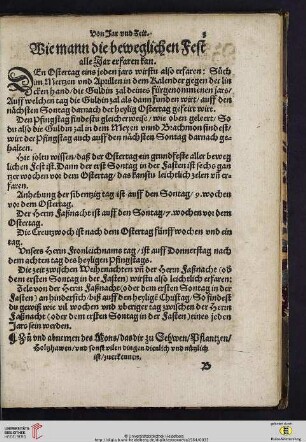 Von Jar vnd Zeit.
Wie mann die beweglichen Fest
alle Jar erfaren kan.
DEn Ostertag eins jeden jars wirstu also erfaren: Such
im Mertzen vnd Aprillen in dem Kalender gegen der lin
cken hand/ die Guldin zal deines fürgenommenen jars/
Auff welchen tag die Guldin zal als dann funden wirt/ auff den
nächsten Sontag darnach der heylig Ostertag gefeirt wirt.
Den Pfingstag findestu gleicherweise/ wie oben gelert: So
du also die Guldin zal in dem Meyen vnnd Brachmon findest/
wirt der Pfingstag auch auff den nächsten Sontag darnach ge-
halten.
Hie solen wissen/ daß der Ostertag ein grundfeste aller beweg
lichen Fest ist. Dann der erst Sontag in der Fasten ist sechs gan
tzer wochen vor dem Ostertag/ das kanstu leichtlich zelen vñ er-
faren.
Anhebung der sibentzig tag ist auff den Sontag/ 9. wochen
vor dem Ostertag.
Der Herrn Faßnacht ist auff den Sontag/ 7. wochen vor dem
Ostertag.
Die Creutzwoch ist nach dem Ostertag fünff wochen vnd ein
tag.
Vnsers Herrn Fronleichnams tag/ ist auff Donnerstag nach
dem achten tag des heyligen Pfingstags.
Die zeit zwischen Weihenachten vñ der Herrn Faßnacht (ob
dem ersten Sontag in der Fasten) wirstu also leichtlich erfaren:
Zele von der Herrn Faßnacht (oder dem ersten Sontag in der
Fasten) an hindersich/ biß auff den heylige Christag/ So findest
du gewiß wie vil wochen vnd überiger tag zwischen der Herrn
Faßnacht (oder dem ersten Sontag in der Fasten) eines jeden
Jars sein werden.
Zů vnd abnemen des Mons/ das dir zu Sehwen/ Pflantzen/
Holtzhawen/ vnd sonst vilen dingen dienlich vnd nützlich
ist/ zuerkennen.
B